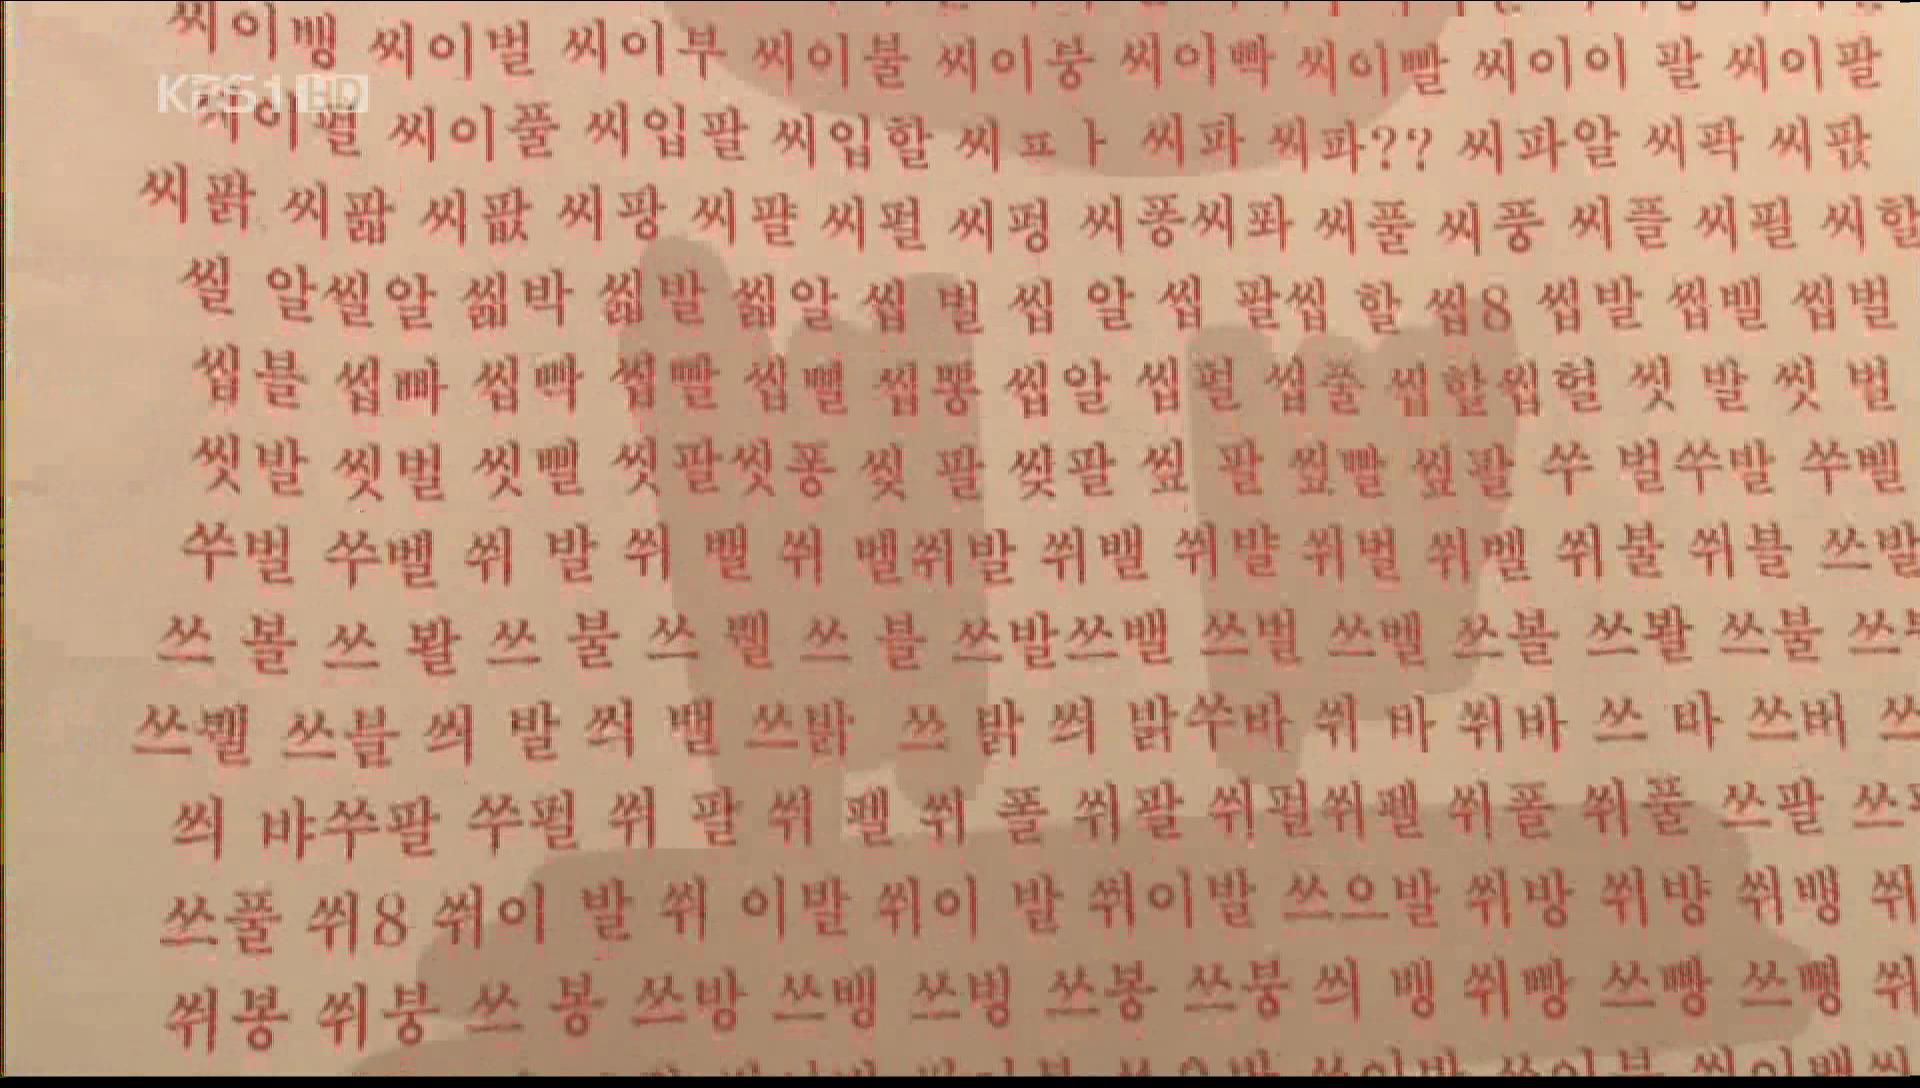 씨이뱅 씨이벌 씨이부 씨이불 씨이붕 씨이빡 씨이빨 씨이이 팔 씨이팔
KBS1 HD
씨이펄 씨이풀 씨입팔 씨입할 씨ㅍㅏ 씨파 씨파?? 씨파알 씨팍 씨팏
씨팕 씨팖 씨팏 씨팡 씨퍌 씨펄 씨펑 씨퐁씨퐈 씨풀 씨풍 씨플 씨필 씨할
씰 알씰알 씲박 씳발 씲알 씹 벌 씹 알 씹 팔씹 할 씹8 씹발 씹벨 씹벌
씹블 씹빠 씹빡 씹빨 씹뻘 씹뽕 씹알 씹펄 씹풀 씹할씹헐 씻 발 씻 벌
씻발 씻벌 씻뻴 씻팔씻퐁 씾 팔 씾팔 씦 팔 씦빨 씦팔 쑤 벌쑤발 쑤벨
쑤벌 쑤벨 쒸 발 쒸 밸 쒸 벨쒸발 쒸밸 쒸뱔 쒸벌 쒸벨 쒸불 쒸블 쓰발
쓰 볼 쓰 봘 쓰 불 쓰 벨 쓰 블 쓰발쓰밸 쓰벌 쓰벨 쓰볼 쓰봘 쓰불
쓰벨 쓰블 씌 발 씌 밸 쓰밝 쓰 밝 씌 밝쑤바 쒸 바 쒸바 쓰 바 쓰버 쓰
씌 뱌쑤팔 쑤펄 쒸 팔 쒸 펠 쒸 폴 쒸팔 쒸펄쒸펠 쒸폴 쒸풀 쓰팔
쓰풀 쒸8 쒸이 발 쒸 이발 쒸이 발 쒸이발 쓰으발 쒸방 쒸뱡 쒸뱅 쒸
쒸봉 쒸붕 쓰 봉 쓰방 쓰뱅 쓰벙 쓰봉 쓰붕 씌 뱅 쒸빵 쓰빵 쓰뺑 쒸